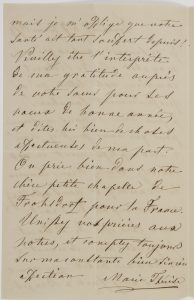 mais je m'afflige que votre
santé ait tant souffert depuis !
Veuillez être l'interprète
de ma gratitude auprès
de votre sœur pour ses
vœux de bonne année,
et dites lui bien de choses
affectueuses de ma part.
On prie bien dans notre
chère petite chapelle de
Frohsdorf pour la France.
Unissez vos prières aux
nôtres, et comptez toujours
sur ma constante bien sincère
affection
Marie Thérèse